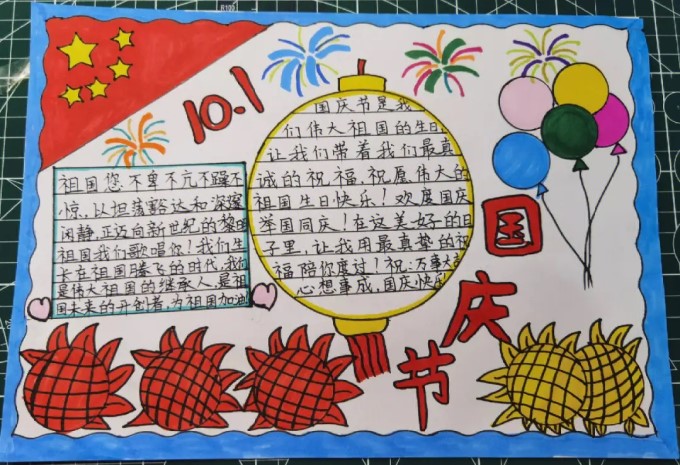 10.1
国庆节是我
们伟大祖国的生日
让我们带着我们最真
诚的祝福,祝愿伟大的
祖国生日快乐!欢度国庆
举国同庆!在这美好的日
子里,让我用最真挚的祝
福陪你度过!祝:万事大吉
心想事成,国庆快乐
祖国您,不卑不亢不躁不
惊,以坦荡豁达和深邃
闲静,正迈向新世纪的黎明
祖国我们歌唱你!我们生
长在祖国腾飞的时代,我们
是伟大祖国的继承人,是祖
国未来的开创者,为祖国加油
国
庆
节